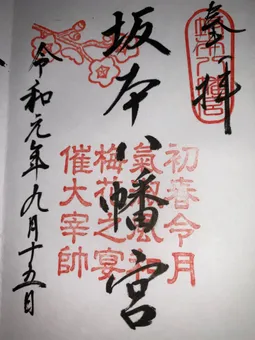 奉拝
坂本八幡宮
初春令月
氣淑風和
梅花之宴
催大宰帥
令和元年九月十五日